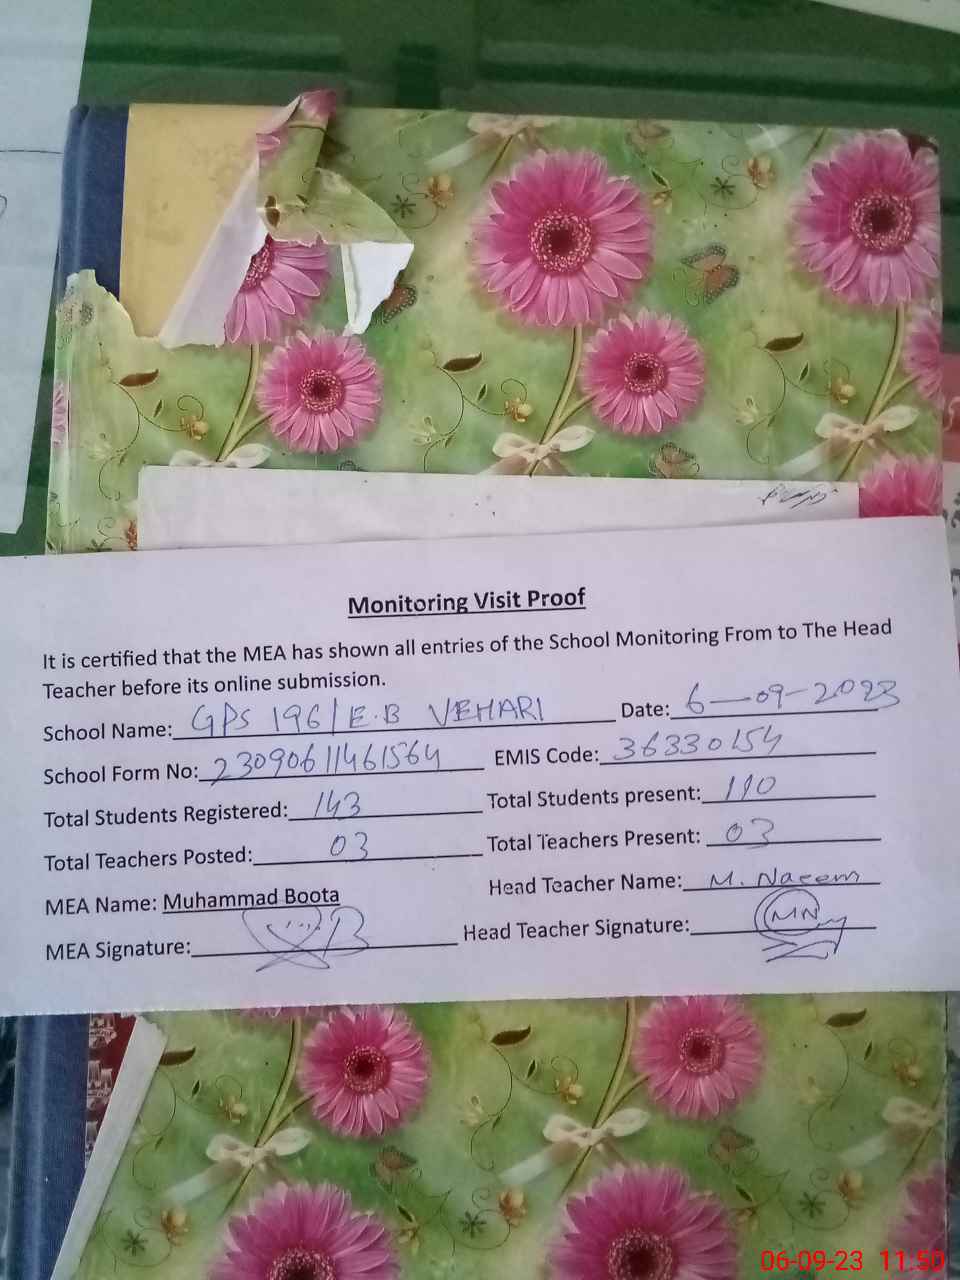 Monitoring Visit Proof
It is certified that the MEA has shown all entries of the School Monitoring From to The Head
Teacher before its online submission.
School Name: GPS 196/E.B VEHARI Date: 6-09-2023
School Form No: 23090611461564 EMIS Code: 36330154
Total Students Registered: 143 Total Students present: 110
Total Teachers Posted: 03 Total Teachers Present: 03
MEA Name: Muhammad Boota Head Teacher Name: M. Naeem
MEA Signature: Head Teacher Signature: MN
06-09-23 11:50